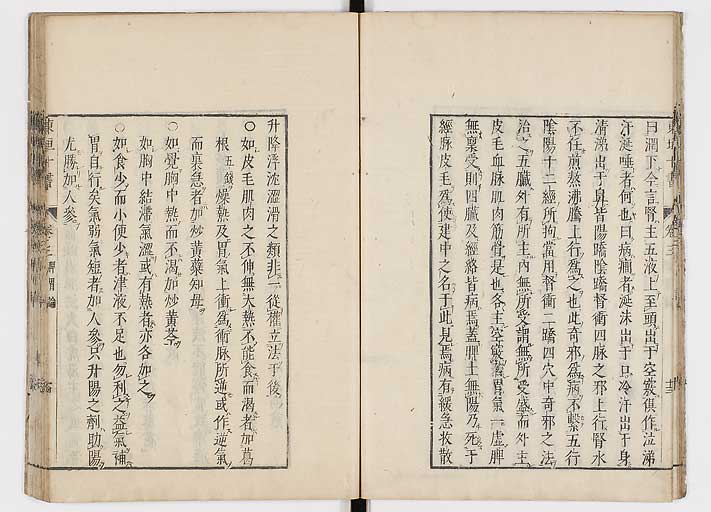 曰潤下今言腎主五液上至頭出于空竅俱作泣涕
汗涎唾者何也曰病癎者涎沫出于口冷汗出于身
清涕出于鼻皆陽蹻陰蹻督衝四脉之邪上行腎水
不任煎熬沸騰上行爲之也此奇邪爲病不繫五行
陰陽十二經所拘當用督衝二蹻四穴中奇邪之法
治之五臟外有所主內無所受謂無所受盛而外主
皮毛血脉肌肉筋骨是也各主空竅蓄胃氣一虛脾
無稟受則四臟及經絡皆病焉蓋脾土無陽乃死于
經脉皮毛爲使建中之名于此見焉病有緩急收散
升降浮沈澀滑之類非一從權立法于後
○如皮毛肌肉之不伸無大熱不能食而渴者加葛
根五錢燥熱及胃氣上衝爲衝脉所逆或作逆氣
而裏急者加炒黃蘗知母
○如覺胸中熱而不渴加炒黃芩
如胸中結滯氣澀或有熱者亦各加之
○如食少而小便少者津液不足也勿利之益氣補
胃自行矣氣弱氣短者加人參只升陽之劑助陽
尤勝加人參
東垣十書
卷三
脾胃論